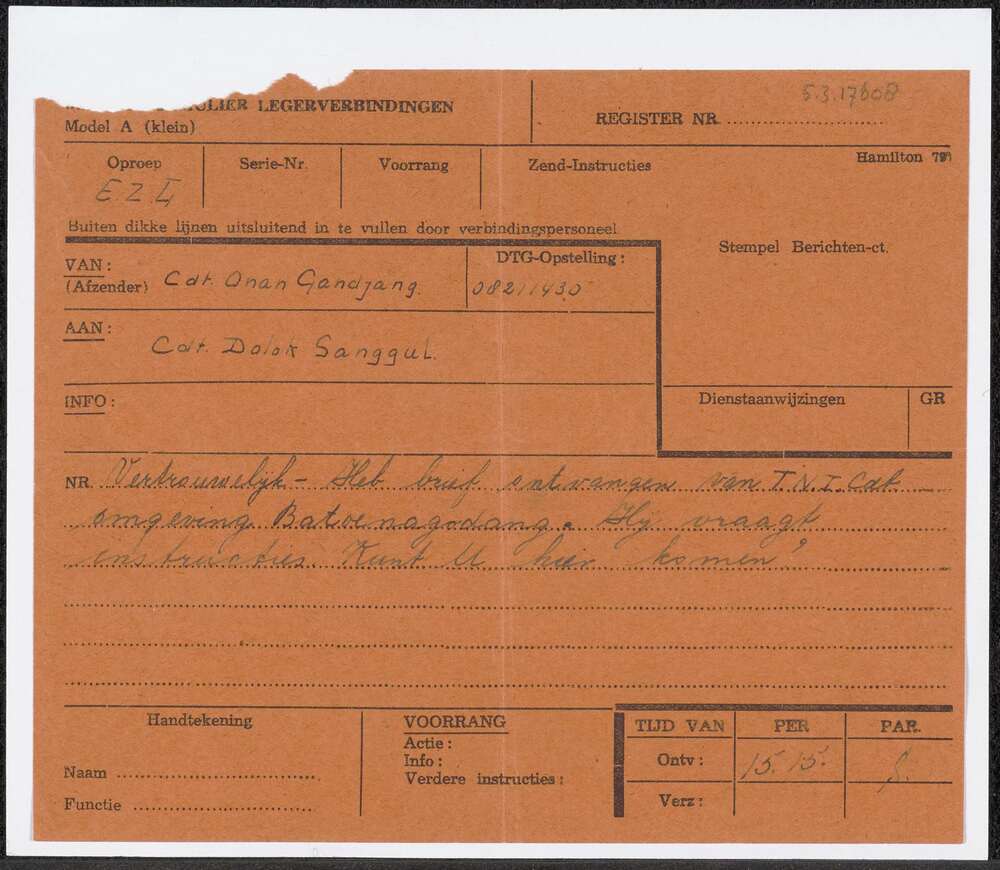 ULIER LEGERVERBINDINGEN
Model A (klein)
5.3.17608
REGISTER NR.
Hamilton 79
Oproep Serie-Nr. Voorrang Zend-Instructies
E.Z.
Buiten dikke lijnen uitsluitend in te vullen door verbindingspersoneel
Stempel Berichten-ct.
VAN: (Afzender) Cdt. Onan Gandjang.
DTG-Opstelling:
08211430
AAN: Cdt. Dolok Sanggul.
INFO:
Dienstaanwijzingen GR
NR Vertrouwelijk - Heb brief ontvangen van T.N.I. Cdt
omgeving Batoenagodang. Hij vraagt
instructies. Kunt U hier komen?
Handtekening
Naam
Functie
VOORRANG
Actie:
Info:
Verdere instructies:
TIJD VAN PER PAR.
Ontv: 15.15.
Verz: